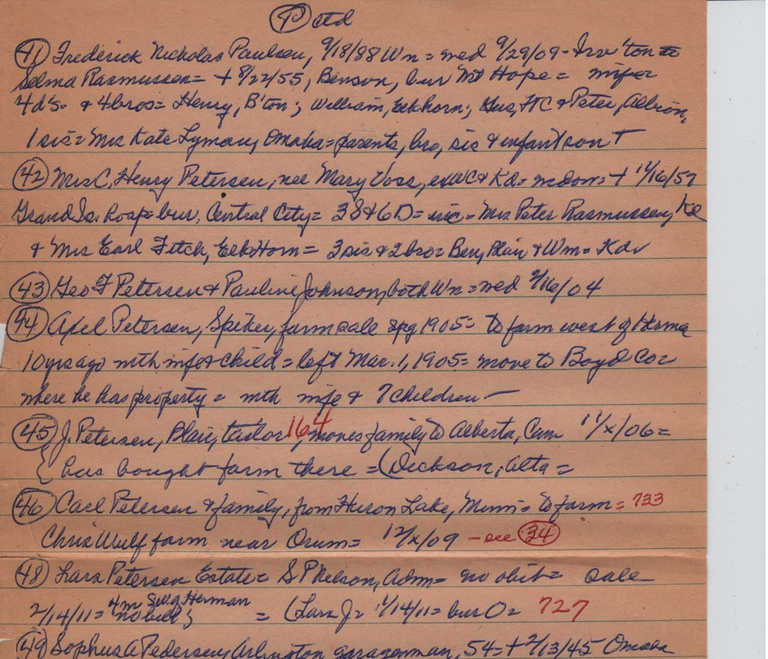 (P) ctd
(41) Frederick Nicholas Paulsen, 9/18/88 Wn = wed 9/29/09 - Irv'ton to
Selma Rasmussen = + 8/22/55, Benson, bur Mt Hope = wife &
4 d's. & 4 bros = Henry, B'ton; William, Elkhorn; Gus, HC & Peter, Albion,
1 sis = Mrs Kate Lyman, Omaha = parents, bro, sis & infant son +
(42) Mrs C. Henry Petersen, nee Mary Voss, ex WC & Kd = = + 11/16/57
Grand Is. hosp = bur. Central City = 3 S & 6 D = = Mrs Peter Rasmussen, Kd
& Mrs Earl Fitch, Elkhorn = 3 sis & 2 bro = Ben, Blair & Wm = Kdv
(43) Geo F Petersen & Pauline Johnson, both Wn = wed 2/16/04
(44) Axel Petersen, Spiker, farm sale spg 1905 = to farm west of Herma
10 yrs ago with wife & child = left Mar. 1, 1905 = move to Boyd Co =
where he has property = with wife & 7 children -
(45) J. Petersen, Blair, tailor 164, moves family to Alberta, Can 11/x/06 =
{ has bought farm there = (Dickson, Alta =
(46) Carl Petersen & family, from Huron Lake, Minn = to farm = 733
Chris Wulf farm near Orum = 12/x/09 - see (34)
(48) Lars Petersen Estate = S P Nelson, Adm = no obit = sale
2/14/11 = 4m SW of Herman = (Lars J = 1/14/11 = bur O = 727
(49) Sophus A Pedersen, Arlington garageman, 54 = + 2/13/45 Omaha